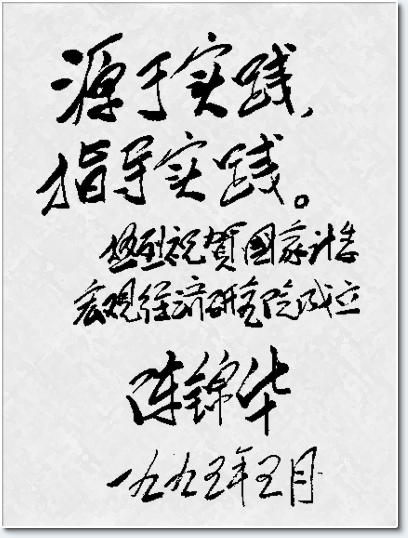 源于实践，
指导实践。
热烈祝贺国家计委
宏观经济研究院成立
陈锦华
一九九五年五月